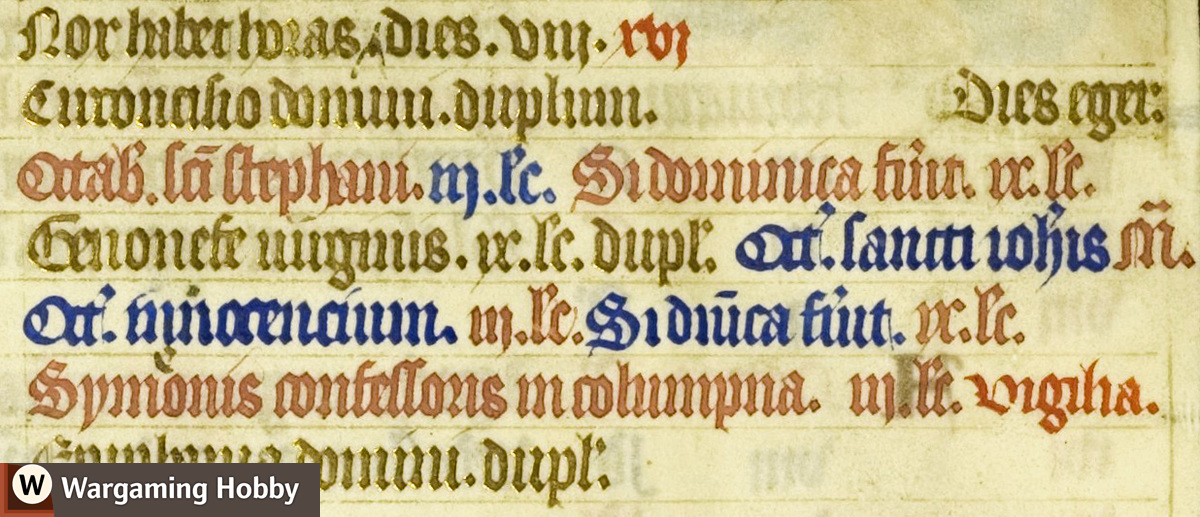 Nox habet horas. dies. viij. xvj
Circoncisio domini. duplum. Dies eger:
Octab'. sci stephani. iij. lc. Si dominica fu'it. ix. lc.
Genouefe uirginis. ix. lc. dupl'. Oct'. sancti ioh'is M.
Oct'. innocencium. iij. lc. Si dnica fu'it. ix. lc.
Symonis confessoris in columpna. iij. lc. vigilia.
Epiphania domini. dupl'.
W Wargaming Hobby